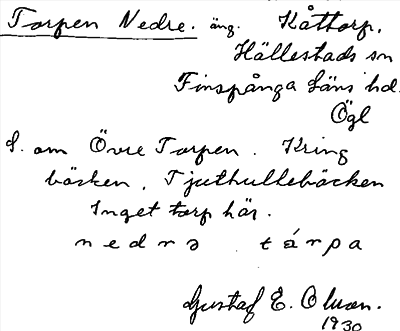 Torpen Nedre. äng. Kåttorp.
Hällestads sn
Finspånga läns hd.
Ögl
S. om Övre Torpen. Kring
bäcken, Tjuthullebäcken
Inget torp här.
nedrə tárpa
Gustaf E. Olsson.
1930